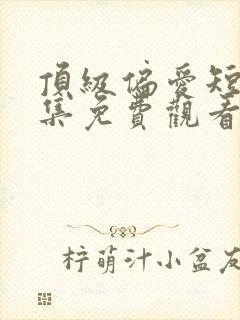 頂級偏愛短
集免費觀看
柠萌汁小盆友